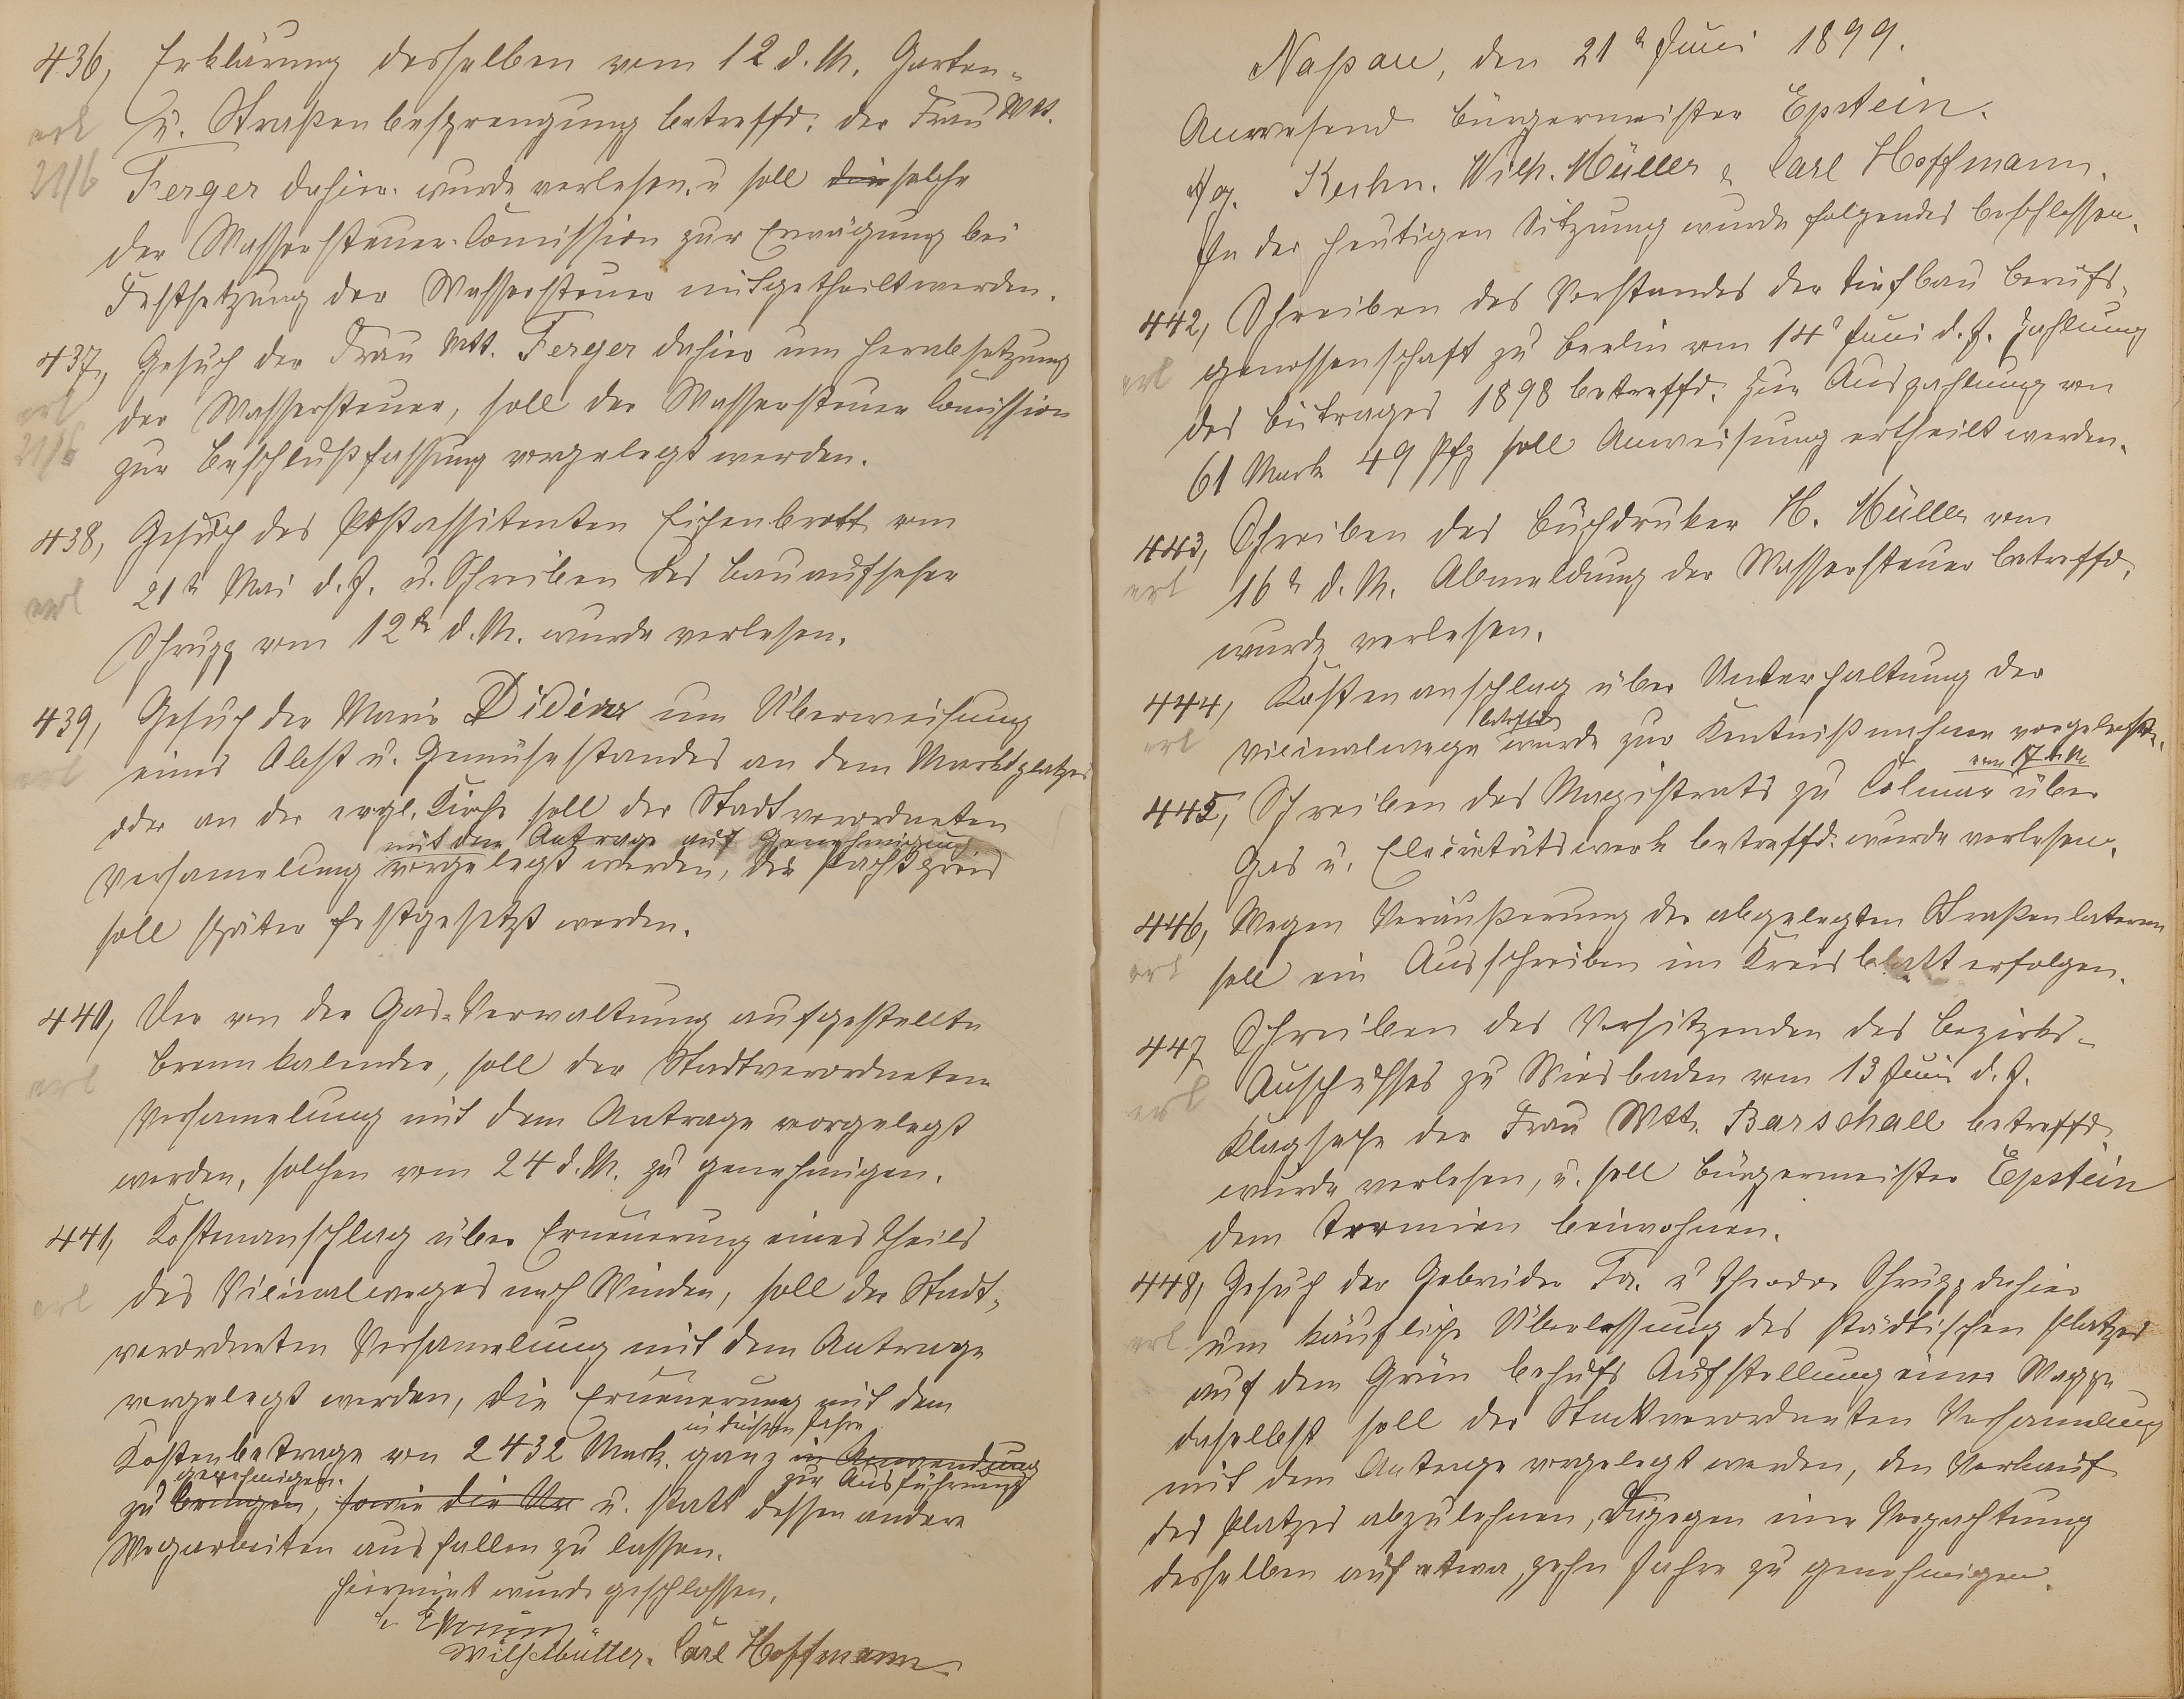 436, Erklärung desselben vom 12 d. M. Garten-
erl u. Straßenbesprengung betreffd. der Frau Wtt.
21/6 Ferger dahier wurde verlesen, u soll die solche
der Wassersteuer-Comission zur Erwägung bei
Festsetzung der Wassersteuer mitgetheilt werden.
437, Gesuch der Frau Wtt. Ferger dahier um Herabsetzung
erl der Wassersteuer, soll der Wassersteuer Comission
21/6 zur Beschlußfassung vorgelegt werden.
438, Gesuch des Postassitenten Eichenbrott vom
erl 21t Mai d. J. u. Schreiben des Bauaufseher
Schrupp vom 12tn d. M. wurde verlesen.
439, Gesuch der Marie Didier um Überweisung
erl eines Obst u. Gemüsestandes an dem Marktplatzes
oder an der evgl. Kirche soll der Stadtverordneten
mit dem Antrage auf Genehmigung
Versamelung vorgelegt werden, der Pachtpreis
soll später festgesetzt werden.
440, Der von der Gas-Verwaltung aufgestellte
erl Brennkalender, soll der Stadtverordneten
Versamelung mit dem Antrage vorgelegt
werden, solchen vom 24 d. M. zu genehmigen.
441, Kostenanschlag über Erneuerung eines Theils
erl des Vicinalweges nach Winden, soll der Stadt-
verordneten Versamelung mit dem Antrage
vorgelegt werden, die Erneuerung mit dem
in diesem Jahre
Kostenbetrage von 2432 Mark. ganz in Anwendung
genehmigen. zur Ausführung
zu bringen, sowie die u. statt dessen andere
Wegarbeiten ausfallen zu lassen.
Hiermit wurde geschlossen.
Wilh Müller. Carl Hoffmann
Naßau, den 21t Juni 1899.
Anwesend Bürgermeister Epstein.
Wilh. Müller & Carl Hoffmann.
In der heutigen Sitzung wurde folgendes beschlossen.
442, Schreiben des Vorstandes der Tiefbau Berufs-
erl genossenschaft zu Berlin vom 14t Juni d. J. Zahlung
des Beitrages 1898 betreffd. Zur Auszahlung von
61 Mark 49 Pfg soll Anweisung ertheilt werden.
443, Schreiben des Buchdruker H. Müller vom
erl 16t d. M. Abmeldung der Wassersteuer betreffd.
wurde verlesen.
444, Kostenanschlag über Unterhaltung der
betreffd
erl Vicinalwege wurde zur Kentnißnahme vorgelegt.
vom 17 d. M.
445, Schreiben des Magistrats zu Colmar über
Gas u. Elecritätswerk betreffd. wurde verlesen.
446, Wegen Veräußerung der abgelegten Straßenlaternen
erl soll ein Ausschreiben im Kreisblatt erfolgen.
447 Schreiben des Vorsitzenden des Bezirks-
erl Auschußes zu Wiesbaden vom 13 Juni d. J.
Klagsache der Frau Wtt. Barschall betreffd.
wurde verlesen, u. soll Bürgermeister Epstein
dem Termien beiwohnen.
448, Gesuch der Gebrüder Fr. u Theodor Schrupp dahier
erl um käufliche Überlassung des städtischen Platzes
auf dem Grün behufs Aufstellung einer Wagge
daselbst soll der Stadtverordneten Versammlung
mit dem Antrage vorgelegt werden, den Verkauf
des Platzes abzulehnen, Dagegen eine Verpachtung
desselben auf etwa zehn Jahre zu genehmigen.